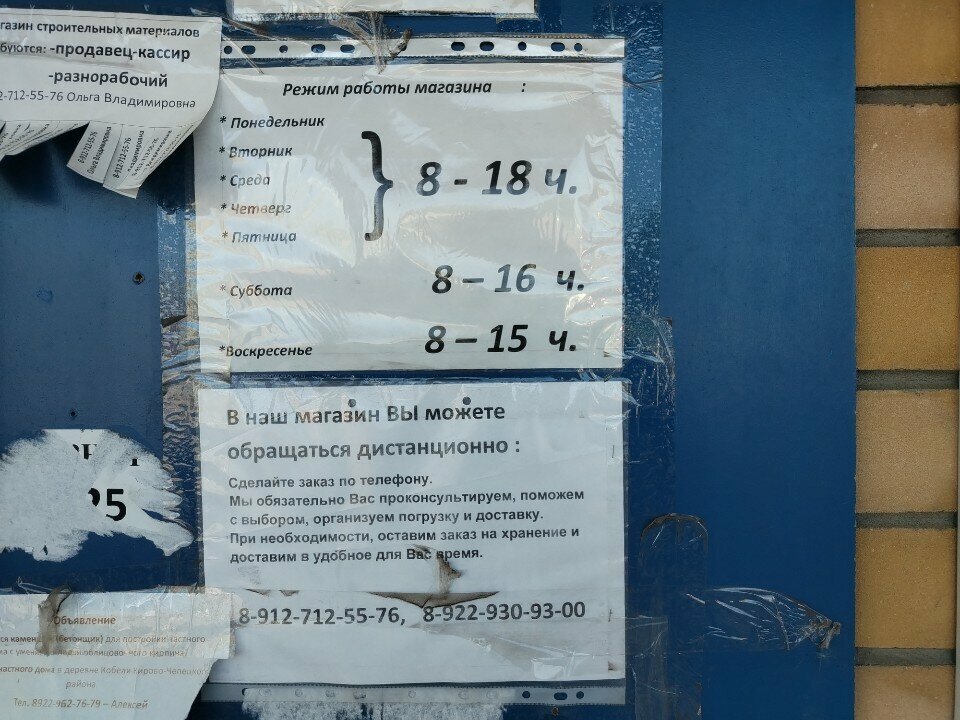 газин строительных материалов
буются: -продавец-кассир
-разнорабочий
2-712-55-76 Ольга Владимировна
8-912-712-55-76
Ольга Владимировна
8-912-712-55-76
Режим работы магазина :
* Понедельник
* Вторник
* Среда
* Четверг
* Пятница
8 - 18 ч.
* Суббота
8 – 16 ч.
*Воскресенье
8 – 15 ч.
В наш магазин ВЫ можете
обращаться дистанционно :
Сделайте заказ по телефону.
Мы обязательно Вас проконсультируем, поможем
с выбором, организуем погрузку и доставку.
При необходимости, оставим заказ на хранение и
доставим в удобное для Вас время.
8-912-712-55-76, 8-922-930-93-00
25
Объявление
ся каменщик (бетонщик) для постройки частного
частного дома в деревне Кобели Кирово-Чепецкого
района
Тел. 8922-962-76-79 – Алексей